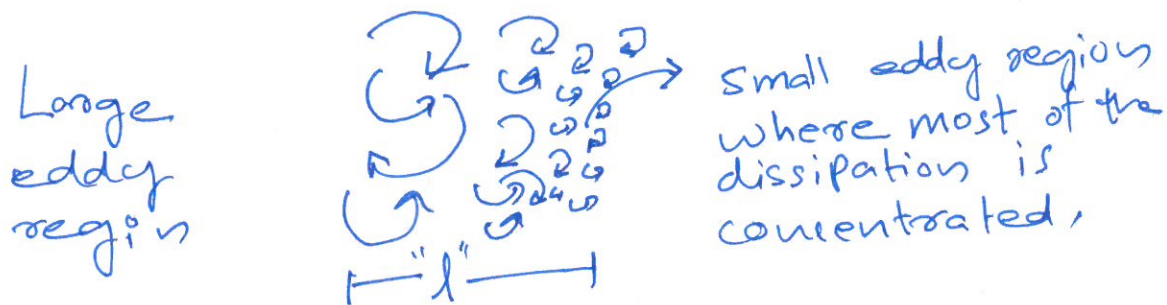 Large
eddy
regin
small eddy region
where most of the
dissipation is
concentrated,
"l"